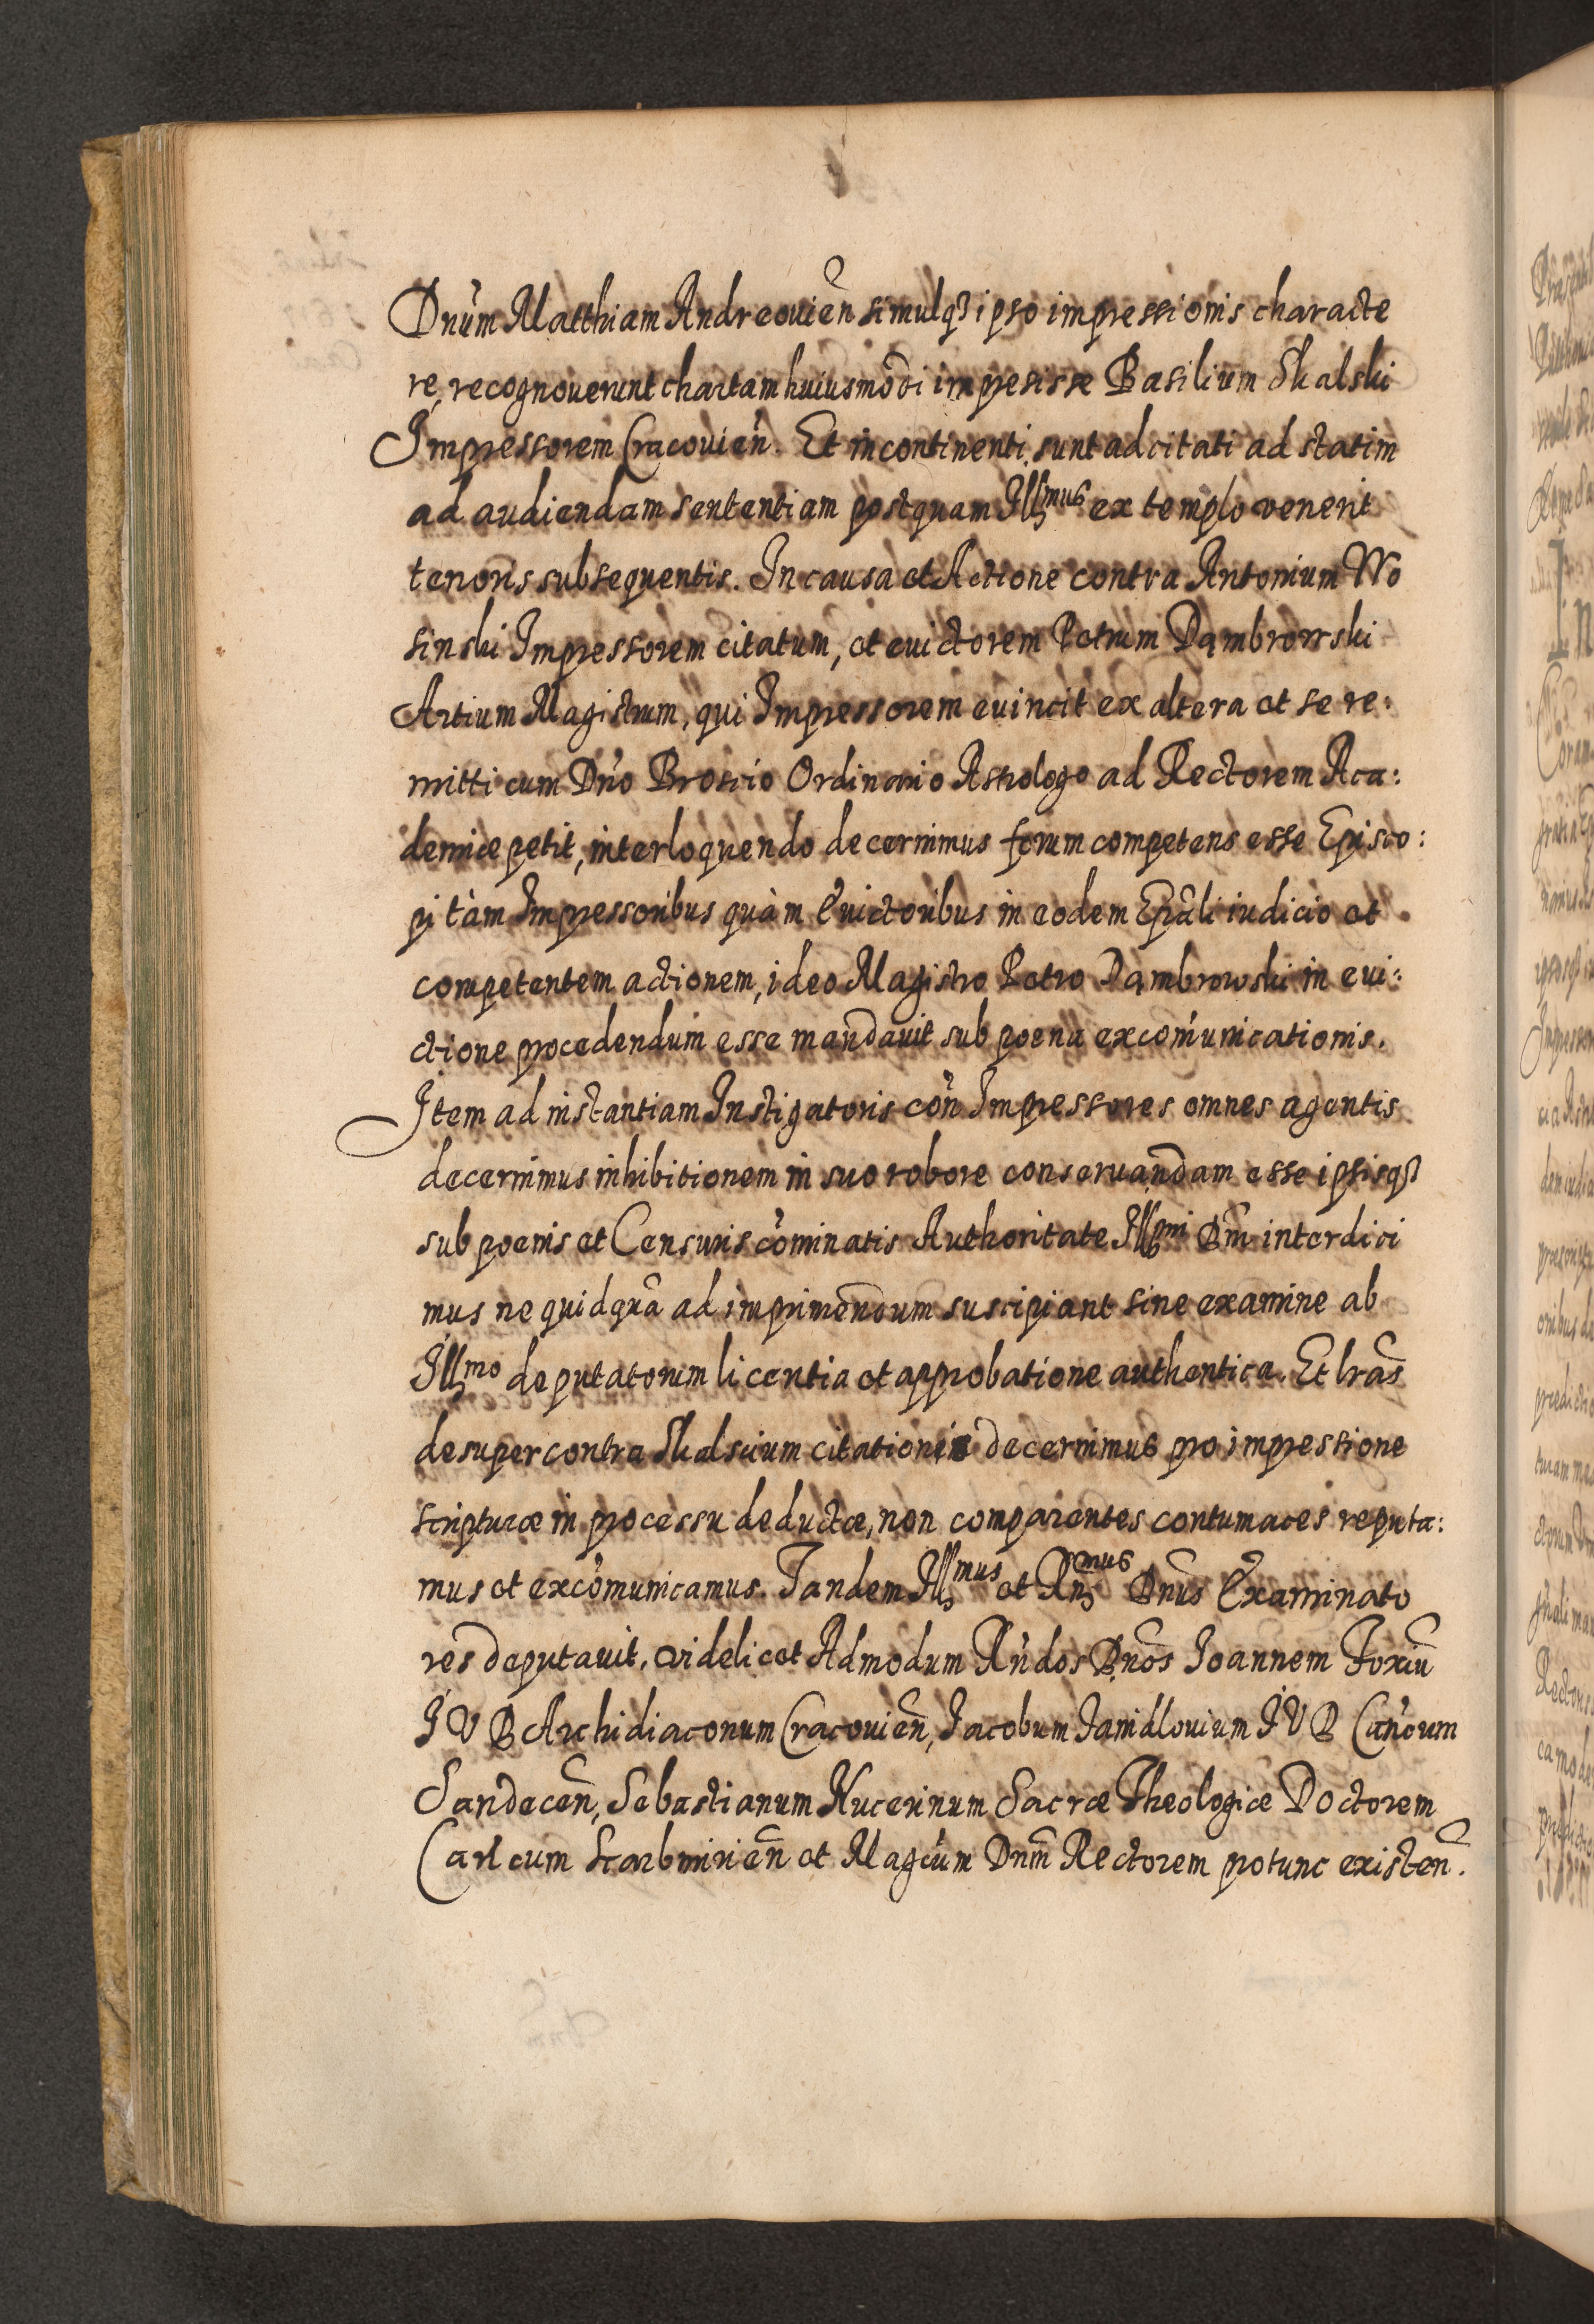 Dnum Matthiam Andreouien simulq3 ipso impressionis characte
re, recognouerunt chartam huiusmodi impesisse Basilium Skalski
Impressorem Cracouien. Et incontinenti sunt adcitati ad statim
ad audiendam sententiam postquam Illmus ex templo venerit
tenoris subsequentis. In causa et Actione contra Antonium Wo
sinski Impressorem citatum, et euictorem Petrum Dąmbrowski
Artium Magistrum, qui Impressorem euincit ex altera et se re:
mitti cum Dno Broscio Ordinario Astrologo ad Rectorem Aca:
demiæ petit, interloquendo decernimus forum competens esse Episco:
pi tàm Impressoribus quàm Euictoribus in eodem Epali iudicio et
competentem actionem, ideo Magistro Petro Dąmbrowski in eui:
ctione procedendum esse mandauit sub poena excomunicationis.
Item ad instantiam Instigatoris con Impressores omnes agentis
decernimus inhibitionem in suo robore conseruandam esse ipsisq3
sub poenis et Censuris cominatis Authoritate Illmi Dni interdici
mus ne quidqua ad imprimendum suscipiant sine examine ab
Illmo deputatorum licentia et approbatione authentica. Et lras
desuper contra Skalscium citationis decernimus pro impressione
scripturæ in processu deductæ, non comparentes contumaces reputa:
mus et excomunicamus. Tandem Illmus et Rndmus Dnus Examinato
res deputauit, videlicet Admodum Rndos Dnos Ioannem Foxiu
I V D Archidiaconum Cracouien, Iacobum Ianidlouium I V D Canoum
Sandecen, Sebastianum Nucerinum Sacræ Theologiæ Doctorem
Can cum Scarbmirien et Magcum Dnm Rectorem po tunc existen.